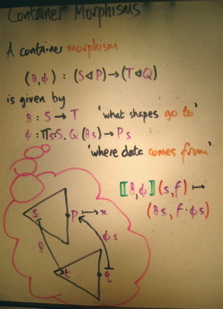 Container Morphisms
A container morphism
(8,φ) : (S◁P)→(T◁Q)
is given by
8 : S → T 'what shapes go to'
φ : Πs:S. Q(8s)→ P s
'where data comes from'
S P → x
⟦8,φ⟧(s,f) ↦
(8s, f·φs)
8 φs
t q